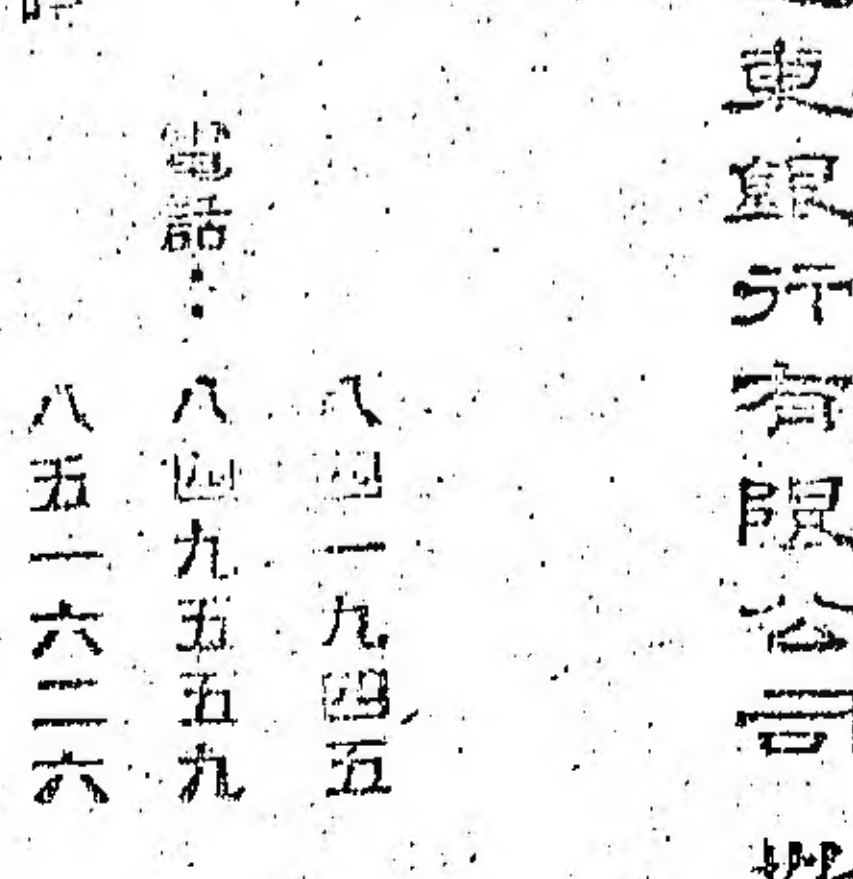 東銀行有限公司
八四一九四五
電話:八四九五五九
八五一六二六